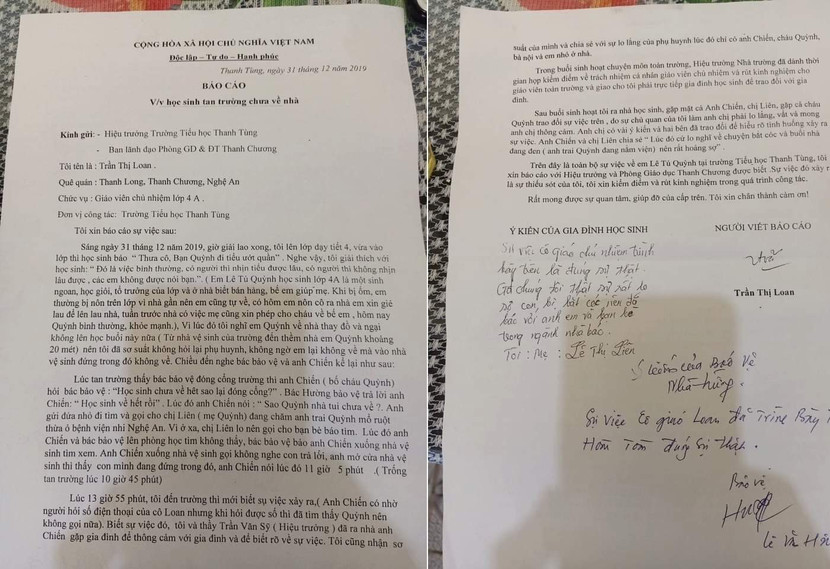 CỘNG HÒA XÃ HỘI CHỦ NGHĨA VIỆT NAM
Độc lập – Tự do – Hạnh phúc
Thanh Tùng, ngày 31 tháng 12 năm 2019
BÁO CÁO
V/v học sinh tan trường chưa về nhà
Kính gửi: - Hiệu trưởng Trường Tiểu học Thanh Tùng
- Ban lãnh đạo Phòng GD & ĐT Thanh Chương
Tôi tên là : Trần Thị Loan .
Quê quán : Thanh Long, Thanh Chương, Nghệ An
Chức vụ : Giáo viên chủ nhiệm lớp 4 A .
Đơn vị công tác: Trường Tiểu học Thanh Tùng
Tôi xin báo cáo sự việc sau:
Sáng ngày 31 tháng 12 năm 2019, giờ giải lao xong, tôi lên lớp dạy tiết 4, vừa vào
lớp thì học sinh báo " Thưa cô, Bạn Quỳnh đi tiểu ướt quần" . Nghe vậy, tôi giải thích với
học sinh: " Đó là việc bình thường, có người thì nhịn tiểu được lâu, có người thì không nhịn
lâu được , các em không được nói bạn." ( Em Lê Tú Quỳnh học sinh lớp 4A là một sinh
ngoan, học giỏi, tổ trưởng của lớp và ở nhà biết bán hàng, bế em giúp mẹ. Khi bị ốm, em
thường bị nôn trên lớp vì nhà gần nên em cũng tự về, có hôm em nôn cô ra nhà em xin giẻ
lau để lên lau nhà, tuần trước nhà có việc mẹ cũng xin phép cho cháu về bế em , hôm nay
Quỳnh bình thường, khỏe mạnh.), Vì lúc đó tôi nghĩ em Quỳnh về nhà thay đồ và ngại
không lên học buổi này nữa ( Từ nhà vệ sinh của trường đến thềm nhà em Quỳnh khoảng
20 mét) nên tôi đã sơ suất không hỏi lại phụ huynh, không ngờ em lại không về mà vào nhà
vệ sinh đứng trong đó không về. Chiều đến nghe bác bảo vệ và anh Chiến kể lại như sau:
Lúc tan trường thấy bác bảo vệ đóng cổng trường thì anh Chiến ( bố cháu Quỳnh)
hỏi bác bảo vệ : "Học sinh chưa về hết sao lại đóng cổng?" . Bác Hường bảo vệ trả lời anh
Chiến: " Học sinh về hết rồi" . Lúc đó anh Chiến nói : " Sao Quỳnh nhà tui chưa về ?. Anh
gửi đứa nhỏ đi tìm và gọi cho chị Liên ( mẹ Quỳnh) đang chăm anh trai Quỳnh mổ ruột
thừa ở bệnh viện nhi Nghệ An. Vì ở xa, chị Liên lo nên gọi cho bạn bè báo tìm. Lúc đó anh
Chiến và bác bảo vệ lên phòng học tìm không thấy, bác bảo vệ bảo anh Chiến xuống nhà vệ
sinh tìm xem. Anh Chiến xuống nhà vệ sinh gọi không nghe con trả lời, anh mở cửa nhà vệ
sinh thì thấy con mình đang đứng trong đó, anh Chiến nói lúc đó 11 giờ 5 phút .( Trống
tan trường lúc 10 giờ 45 phút)
Lúc 13 giờ 55 phút, tôi đến trường thì mới biết sự việc xảy ra,( Anh Chiến có nhờ
người hỏi số điện thoại của cô Loan nhưng khi hỏi được số thì đã tìm thấy Quỳnh nên
không gọi nữa). Biết sự việc đó, tôi và thầy Trần Văn Sỹ ( Hiệu trưởng ) đã ra nhà anh
Chiến gặp gia đình để thông cảm với gia đình và để biết rõ về sự việc. Tôi cũng nhận sơ
suất của mình và chia sẻ với sự lo lắng của phụ huynh lúc đó chỉ có anh Chiến, cháu Quỳnh,
bà nội và em nhỏ ở nhà.
Trong buổi sinh hoạt chuyên môn toàn trường, Hiệu trưởng Nhà trường đã dành thời
gian họp kiểm điểm về trách nhiệm cá nhân giáo viên chủ nhiệm và rút kinh nghiệm cho
giáo viên toàn trường và giao cho tôi phải trực tiếp gia đình học sinh để trao đổi với gia
đình.
Sau buổi sinh hoạt tôi ra nhà học sinh, gặp mặt cả Anh Chiến, chị Liên, gặp cả cháu
Quỳnh trao đổi sự việc trên , do sự chủ quan của tôi làm anh chị phải lo lắng, vất và mong
anh chị thông cảm. Anh chị có vài ý kiến và hai bên đã trao đổi để hiểu rõ tình huống xảy ra
sự việc. Anh Chiến và chị Liên chia sẻ " Lúc đó cứ lo nghĩ về chuyện bắt cóc và buổi nhà
đang đen ( anh trai Quỳnh đang nằm viện) nên rất hoảng sợ" .
Trên đây là toàn bộ sự việc về em Lê Tú Quỳnh tại trường Tiểu học Thanh Tùng, tôi
xin báo cáo với Hiệu trưởng và Phòng Giáo dục Thanh Chương được biết .Sự việc đó xảy r
là sự thiếu sót của tôi, tôi xin kiểm điểm và rút kinh nghiệm trong quá trình công tác.
Rất mong được sự quan tâm, giúp đỡ của cấp trên. Tôi xin chân thành cảm ơn!
Ý KIẾN CỦA GIA ĐÌNH HỌC SINH
NGƯỜI VIẾT BÁO CÁO
Sự việc cô giáo chủ nhiệm trình
bày trên là đúng sự thật.
Trần Thị Loan
Tôi : Mẹ : Lê Thị Liên
Ý kiến của Bảo Vệ
Nhà trường.
Sự việc Cô giáo Loan đã Trình Bày T
Hoàn Toàn đúng Sự thật .
Bảo vệ